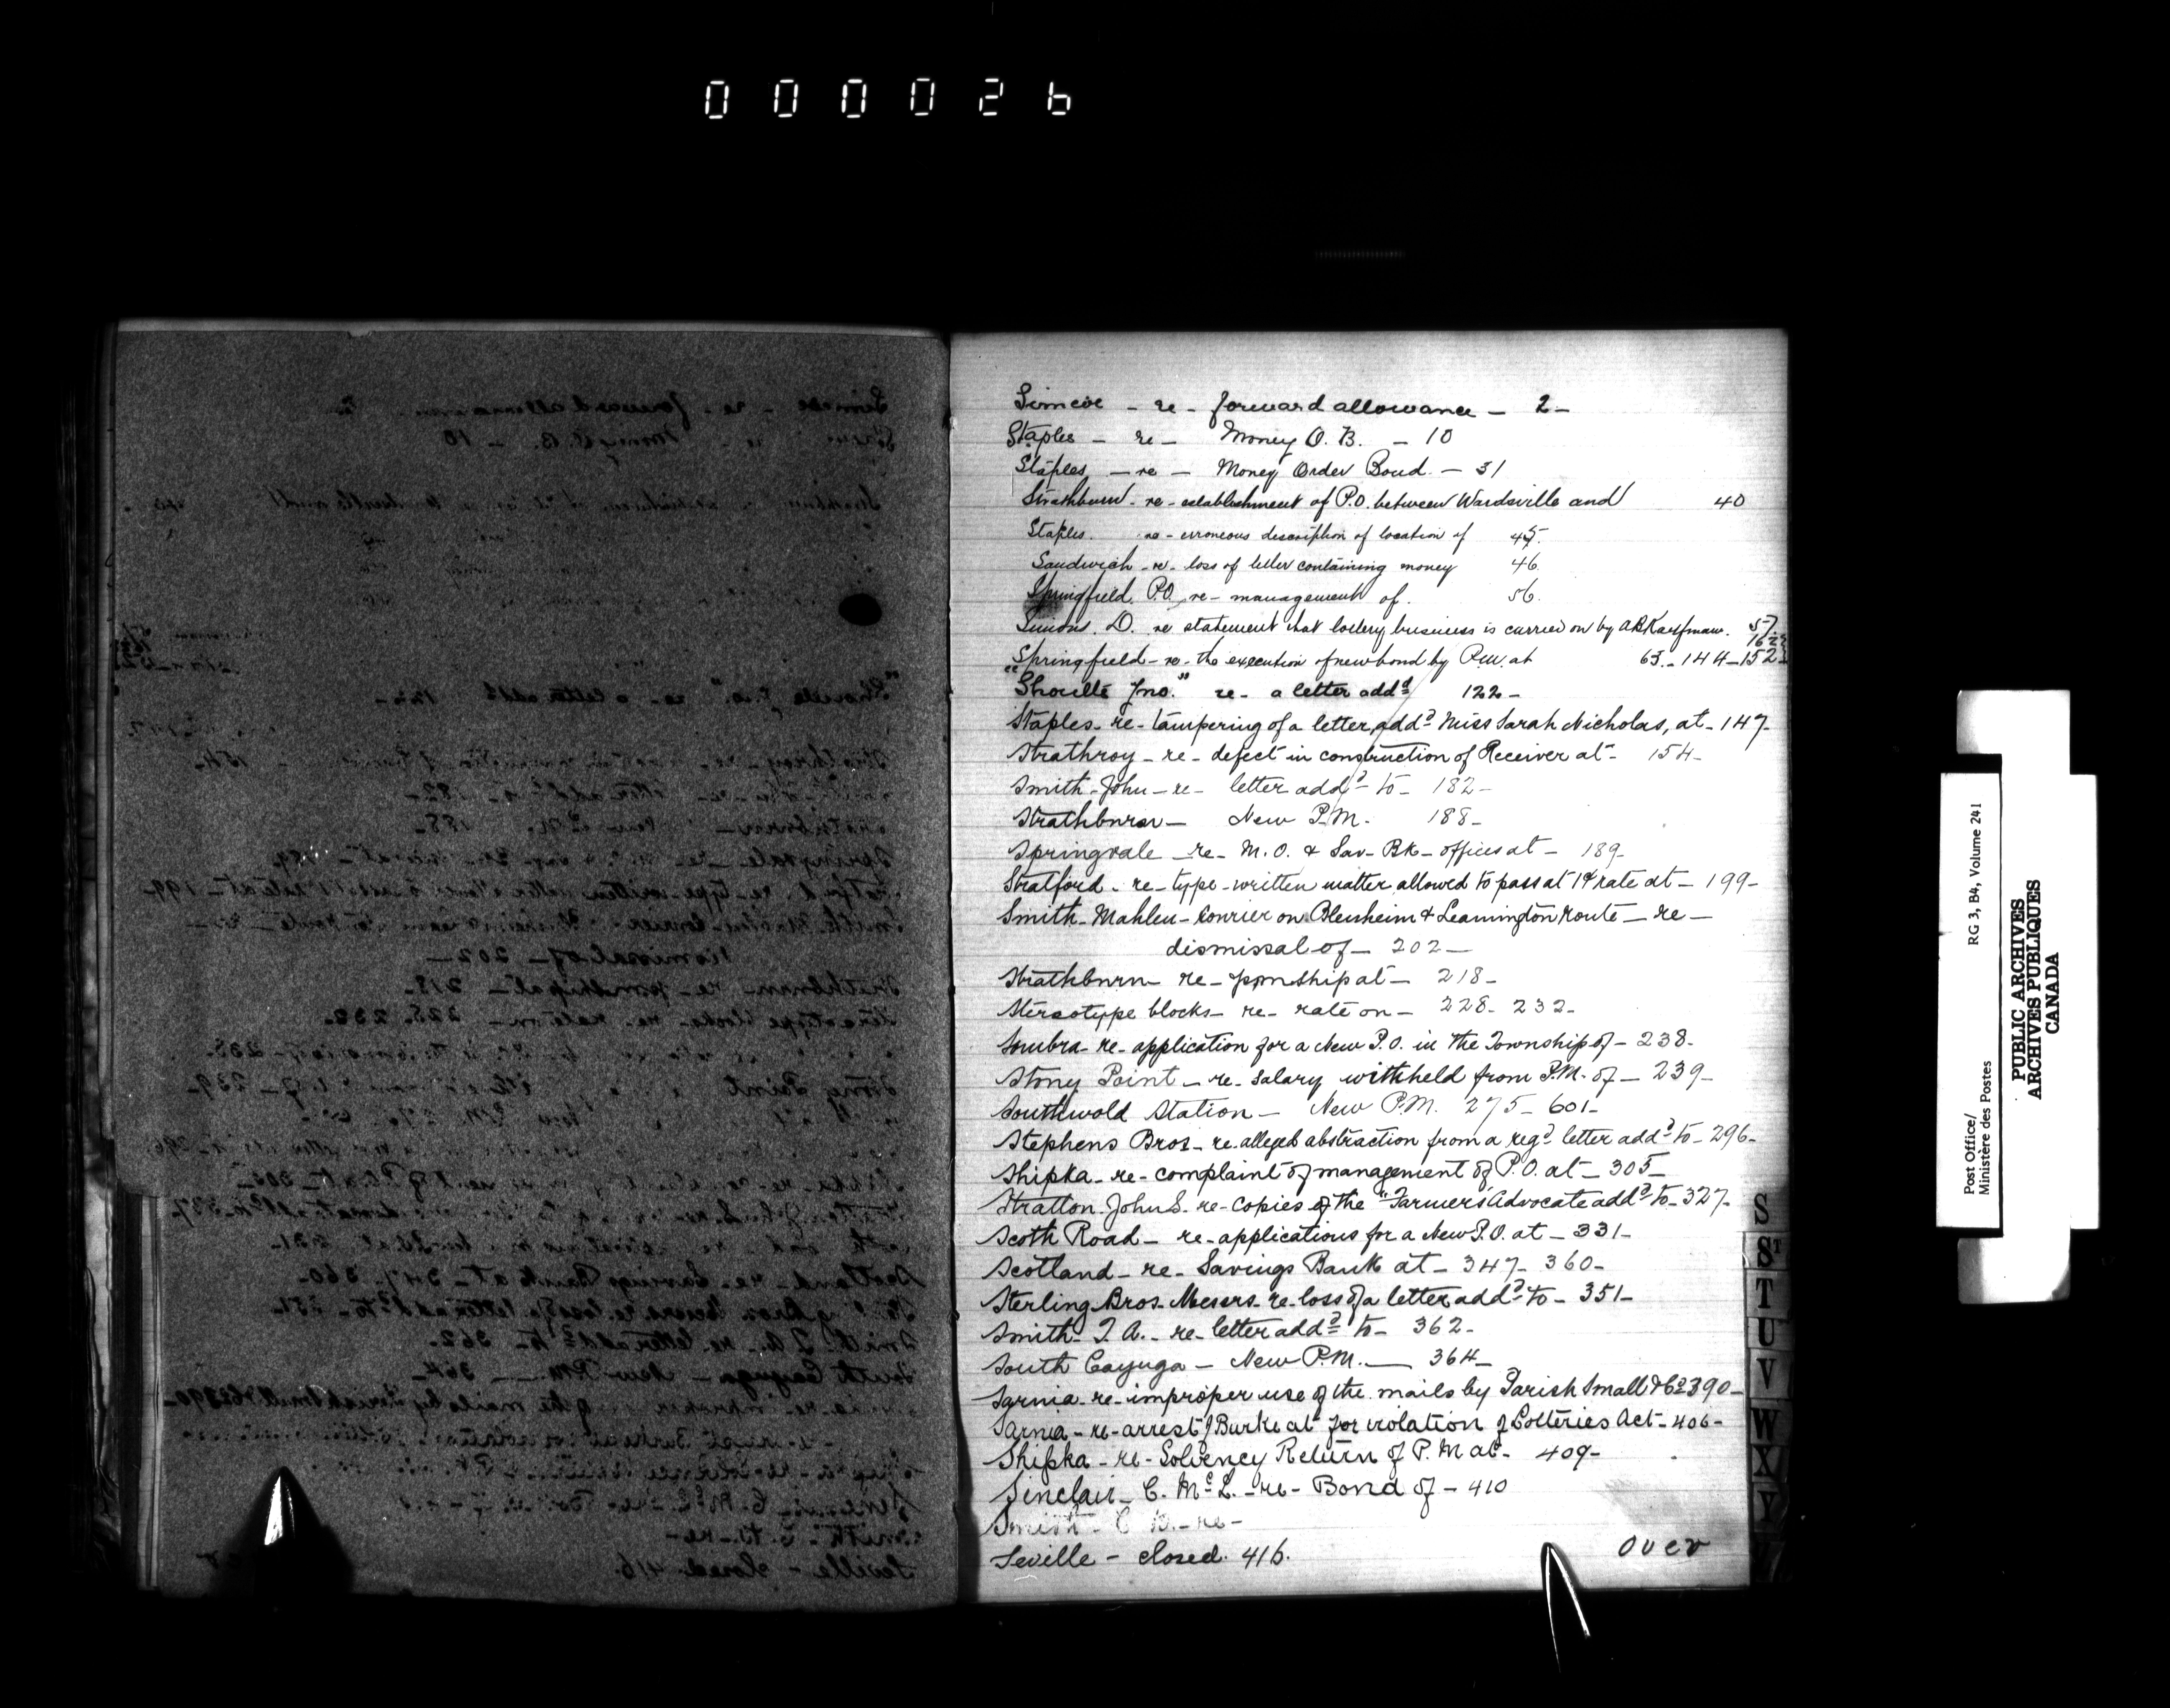 000026
Simcoe - re - forward allowance - 2 -
Staples - re - Money O. B. - 10
Staples - re - Money Order Bond - 31
Strathburn - re - establishment of P.O. between Wardsville and 40
Staples. re - erroneous description of location of 45.
Sandwich - re - loss of letter containing money 46.
Springfield. P.O. re - management of. 56.
Simons. D. re statement that lottery business is carried on by A R Kauffman. 57
162
Springfield - re - the execution of new bond by P.M. at 63 - 144 - 152
"Shoults Jno." re - a letter addd 122 -
Staples - re - tampering of a letter addd Miss Sarah Nicholas, at - 147 -
Strathroy - re - defect in construction of Receiver at - 154 -
Smith - John - re - letter addd to - 182 -
Strathburn - New P.M. 188 -
Springvale - re - M.O. & Sav - Bk - offices at - 189 -
Stratford - re - type-written matter allowed to pass at 1¢ rate at - 199 -
Smith - Mahlen - Courier on Blenheim & Leamington Route - re -
dismissal of - 202 -
Strathburn - re - pmship at - 218 -
Stereotype blocks - re - rate on - 228 - 232 -
Sombra - re - application for a New P.O. in the Township of - 238 -
Stony Point - re - salary withheld from P.M. of - 239 -
Southwold Station - New P.M. 275 - 601 -
Stephens Bros - re - alleged abstraction from a regd letter addd to - 296 -
Shipka - re - complaint of management of P.O. at - 305 -
Stratton John S. - re - Copies of the "Farmers' Advocate addd to - 327 -
Scoth Road - re - applications for a New P.O. at - 331 -
Scotland - re - Savings Bank at - 347 - 360 -
Sterling Bros - Messrs - re - loss of a letter addd to - 351 -
Smith - T. A. - re - letter addd to - 362 -
South Cayuga - New P.M. - 364 -
Sarnia - re - improper use of the mails by Parish Small & Co 390 -
Sarnia - re - arrest of Burke at for violation of Lotteries Act - 406 -
Shipka - re - Solvency Return of P.M at - 409 -
Sinclair - C. McL. - re - Bond of - 410
Smith - C. B. - re -
Seville - closed. 416.
Over
S
ST
T
U
V
W
X
Y
Post Office/
Ministère des Postes
RG 3, B4, Volume 241
PUBLIC ARCHIVES
ARCHIVES PUBLIQUES
CANADA